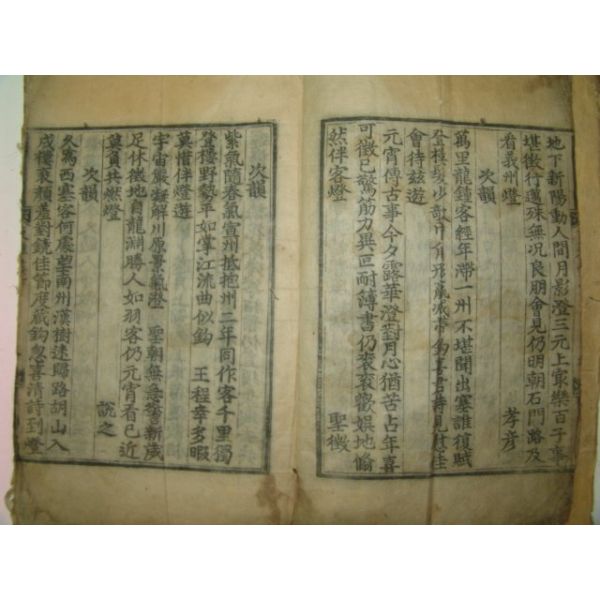 地下新陽動人間月影澄三元上家樂百子事
堪徵行邁殊無况良朋會見仍明朝石門路及
看義州燈
次韻 孝彦
萬里龍鍾客經年滯一州不堪聞出塞誰復賦
登樓
會待玆遊
元宵傳古事今夕露華澄對月心猶苦占年喜
可徵已驚筋力異叵耐簿書仍袞袞歡娱地偷
然伴客燈 聖徵
次韻
紫氣隨春氣宣州抵抱州二年同作客千里獨
登樓野勢平如掌江流曲似鉤 王程幸多暇
莫惜伴燈遊
宇宙嚴凝解川原景氣澄 聖朝無急警新歲
足休徵地自龍淵勝人如羽客仍元宵看已近
莫負共燃燈
次韻 說之
久爲西塞客何處望南州漢樹迷歸路胡山入
戍樓衰顔羞對鏡佳節度藏鉤忽喜清詩到燈